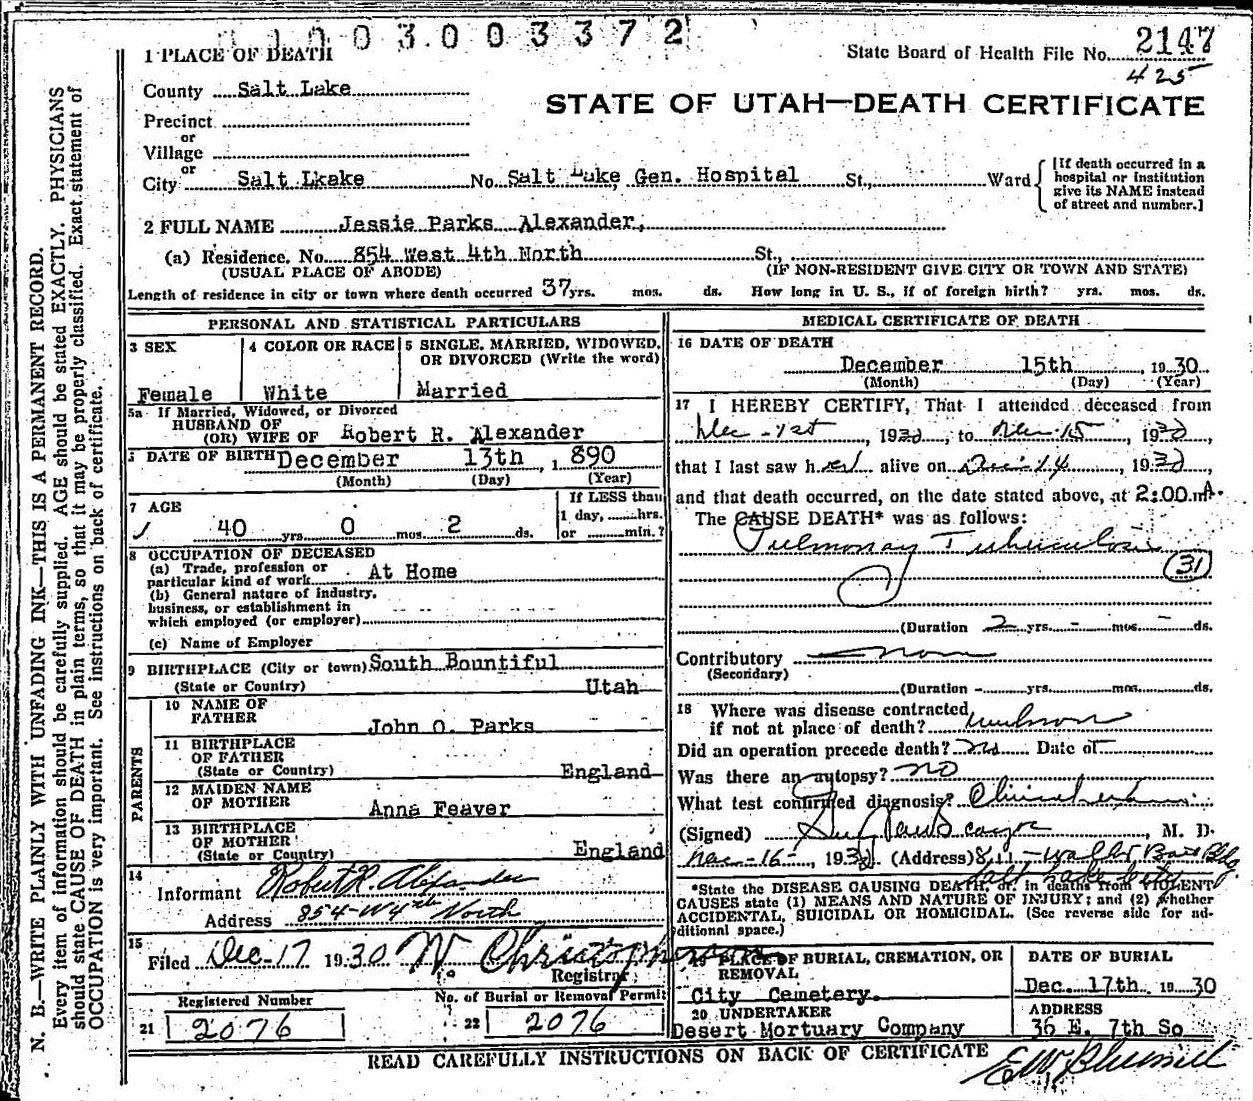 1003003372
State Board of Health File No. 2147
425
1 PLACE OF DEATH
County Salt Lake
STATE OF UTAH—DEATH CERTIFICATE
Precinct
or
Village
or
City Salt Lkake No. Salt Lake, Gen. Hospital St., Ward
[If death occurred in a hospital or institution give its NAME instead of street and number.]
2 FULL NAME Jessie Parks Alexander,
(a) Residence. No. 854 West 4th North St.,
(USUAL PLACE OF ABODE) (IF NON-RESIDENT GIVE CITY OR TOWN AND STATE)
Length of residence in city or town where death occurred 37 yrs. mos. ds. How long in U. S., if of foreign birth? yrs. mos. ds.
PERSONAL AND STATISTICAL PARTICULARS
3 SEX
Female
4 COLOR OR RACE
White
5 SINGLE, MARRIED, WIDOWED, OR DIVORCED (Write the word)
Married
5a If Married, Widowed, or Divorced
HUSBAND OF
(OR) WIFE OF Robert R. Alexander
DATE OF BIRTH December 13th, 1890
(Month) (Day) (Year)
7 AGE
40 yrs. 0 mos. 2 ds.
If LESS than
1 day, hrs.
or min.?
8 OCCUPATION OF DECEASED
(a) Trade, profession or
particular kind of work At Home
(b) General nature of industry,
business, or establishment in
which employed (or employer)
(c) Name of Employer
9 BIRTHPLACE (City or town) South Bountiful
(State or Country) Utah
PARENTS
10 NAME OF
FATHER John O. Parks
11 BIRTHPLACE
OF FATHER
(State or Country) England
12 MAIDEN NAME
OF MOTHER Anna Feaver
13 BIRTHPLACE
OF MOTHER
(State or Country) England
14
Informant Robert R. Alexander
Address 854-W 4th North
15
Filed Dec-17 1930
Registrar
Registered Number
21 2076
No. of Burial or Removal Permit
22 2076
MEDICAL CERTIFICATE OF DEATH
16 DATE OF DEATH
December 15th, 1930
(Month) (Day) (Year)
17 I HEREBY CERTIFY, That I attended deceased from
Dec-1st, 1930, to Dec-15, 1930
that I last saw her alive on Dec-14, 1930,
and that death occurred, on the date stated above, at 2:00.m A.
The CAUSE DEATH* was as follows:
Pulmonary Tuberculosis
31
(Duration 2 yrs. - mos. - ds.
Contributory None
(Secondary)
(Duration - yrs. mos. ds.
18 Where was disease contracted
if not at place of death? unknown
Did an operation precede death? no Date of
Was there an autopsy? NO
What test confirmed diagnosis?
(Signed) , M. D.
Dec-16-, 1930. (Address) 811-Walker Bank Bldg.
Salt Lake City
*State the DISEASE CAUSING DEATH, or, in deaths from VIOLENT
CAUSES state (1) MEANS AND NATURE OF INJURY; and (2) whether
ACCIDENTAL, SUICIDAL OR HOMICIDAL. (See reverse side for ad-
ditional space.)
19 PLACE OF BURIAL, CREMATION, OR
REMOVAL
City Cemetery.
DATE OF BURIAL
Dec. 17th. 1930
20 UNDERTAKER
Desert Mortuary Company
ADDRESS
36 E. 7th So
READ CAREFULLY INSTRUCTIONS ON BACK OF CERTIFICATE
N. B.—WRITE PLAINLY WITH UNFADING INK—THIS IS A PERMANENT RECORD.
Every item of information should be carefully supplied. AGE should be stated EXACTLY. PHYSICIANS
should state CAUSE OF DEATH in plain terms, so that it may be properly classified. Exact statement of
OCCUPATION is very important. See instructions on back of certificate.